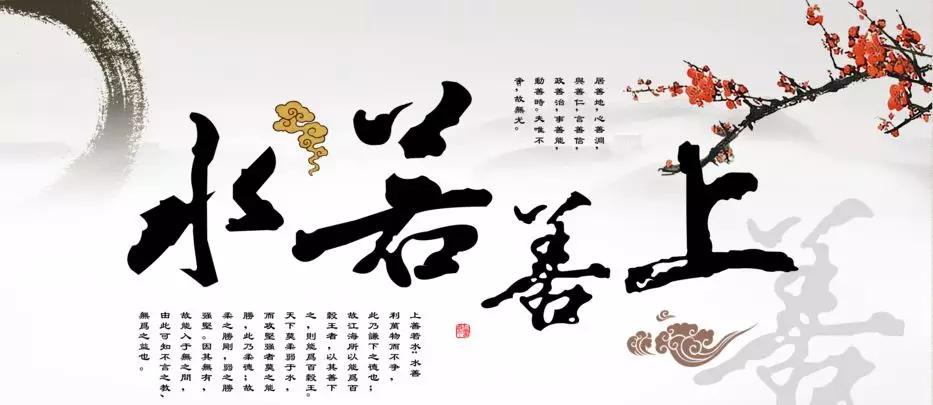 上善若水
善
居善地，心善淵，
與善仁，言善信，
政善治，事善能，
動善時。夫唯不
爭，故無尤。
上善若水"水善
利萬物而不爭，
此乃謙下之德也；
故江海所以能爲百
穀王者，以其善下
之，則能爲百穀王。
天下莫柔弱于水，
而攻堅强者莫之能
勝，此乃柔德；故
柔之勝剛，弱之勝
强堅。因其無有，
故能入于無之間，
由此可知不言之教、
無爲之益也。